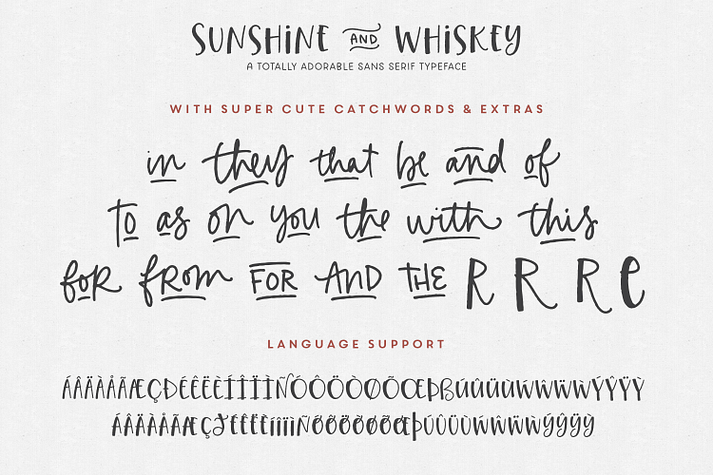 SUNSHiNE AND WHiSKEY
A TOTALLY ADORABLE SANS SERIF TYPEFACE
WITH SUPER CUTE CATCHWORDS & EXTRAS
in they that be and of
to as on you the with this
foR fRom FOR AND THE R R R e
LANGUAGE SUPPORT